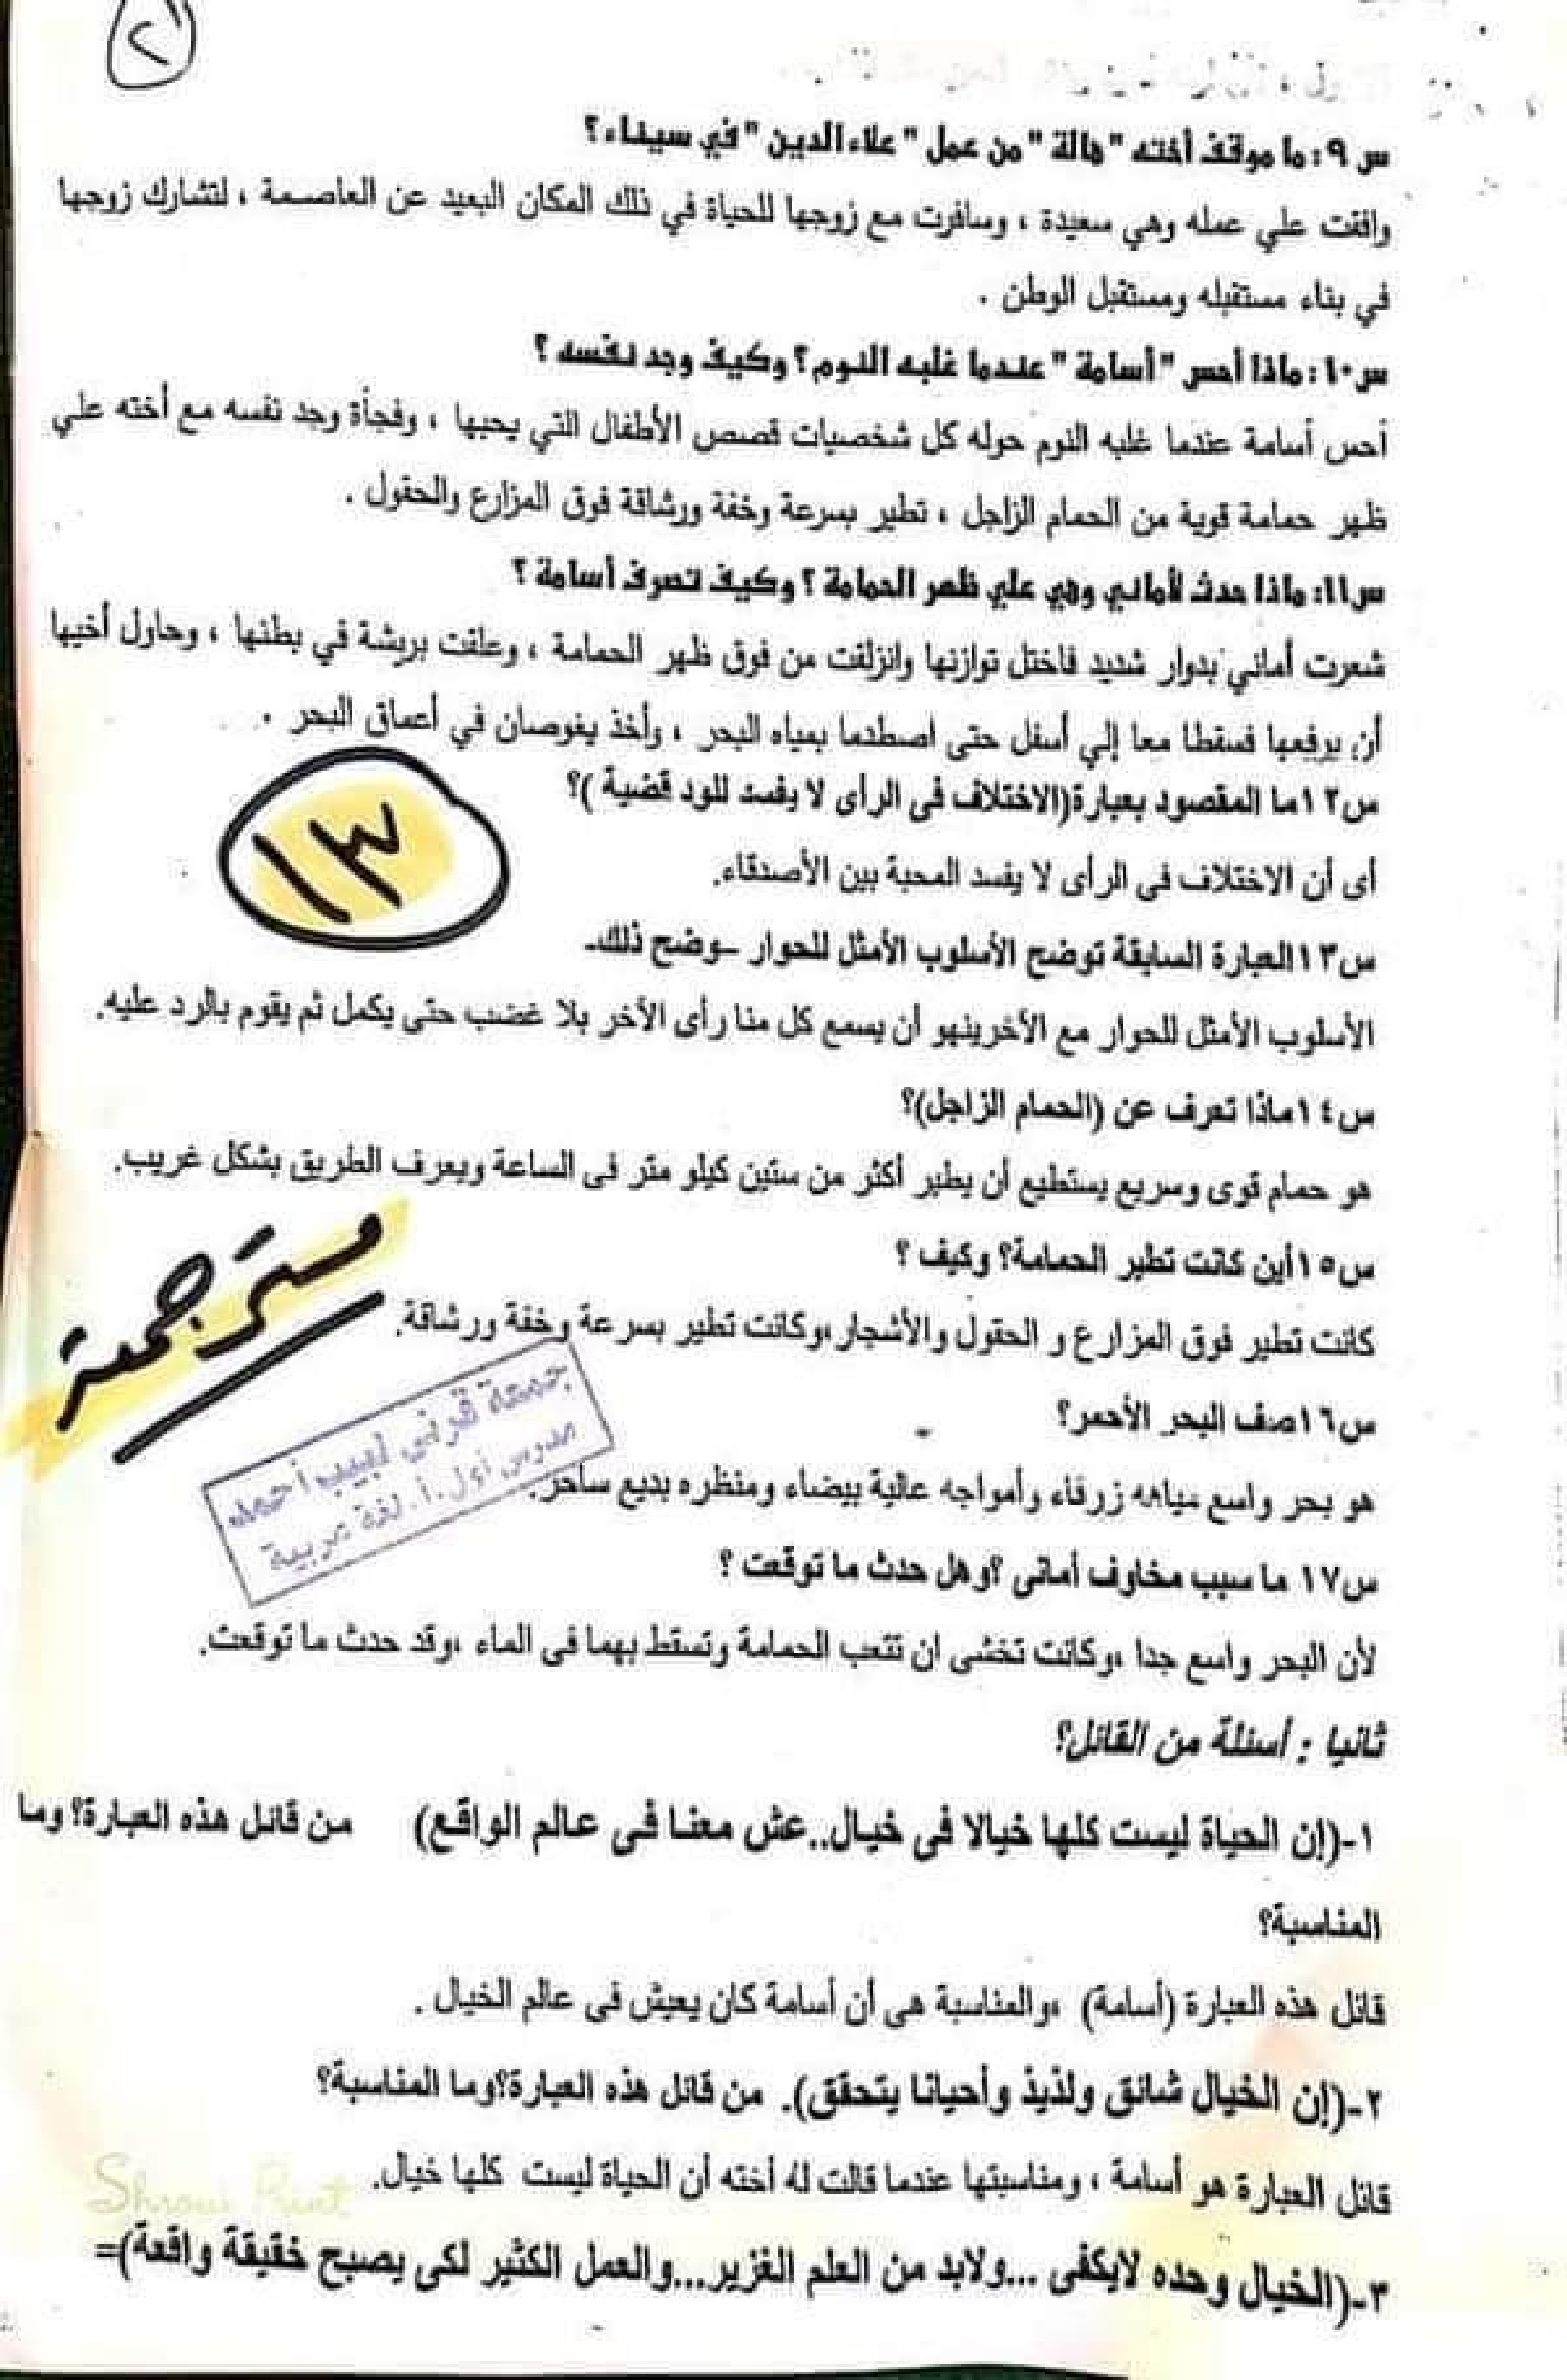 ٢
س ٩ : ما موقف أخته " هالة " من عمل " علاء الدين " في سيناء ؟
وافقت علي عمله وهي سعيدة ، وسافرت مع زوجها للحياة في ذلك المكان البعيد عن العاصمة ، لتشارك زوجها
في بناء مستقبله ومستقبل الوطن .
س١٠ : ماذا أحس " أسامة " عندما غلبه النوم ؟ وكيف وجد نفسه ؟
أحس أسامة عندما غلبه النوم حوله كل شخصيات قصص الأطفال التي يحبها ، وفجأة وجد نفسه مع أخته علي
ظهر حمامة قوية من الحمام الزاجل ، تطير بسرعة وخفة ورشاقة فوق المزارع والحقول .
س١١: ماذا حدث لأماني وهي علي ظهر الحمامة ؟ وكيف تصرف أسامة ؟
شعرت أماني بدوار شديد فاختل توازنها وانزلقت من فوق ظهر الحمامة ، وعلقت بريشة في بطنها ، وحاول أخيها
أن يرفعها فسقطا معا إلي أسفل حتى اصطدما بمياه البحر ، وأخذ يغوصان في أعماق البحر .
س١٢ما المقصود بعبارة(الاختلاف فى الرأى لا يفسد للود قضية )؟
أى أن الاختلاف فى الرأى لا يفسد المحبة بين الأصدقاء.
١٣
س١٣العبارة السابقة توضح الأسلوب الأمثل للحوار –وضح ذلك-
الأسلوب الأمثل للحوار مع الأخرينهو أن يسمع كل منا رأى الأخر بلا غضب حتى يكمل ثم يقوم بالرد عليه.
س١٤ماذا تعرف عن (الحمام الزاجل)؟
هو حمام قوى وسريع يستطيع أن يطير أكثر من ستين كيلو متر فى الساعة ويعرف الطريق بشكل غريب.
س١٥أين كانت تطير الحمامة؟ وكيف ؟
كانت تطير فوق المزارع و الحقول والأشجار،وكانت تطير بسرعة وخفة ورشاقة.
مستر جمعة
جمعة قرني لبيب أحمد
مدرس أول .أ. لغة عربية
س١٦صف البحر الأحمر؟
هو بحر واسع مياهه زرقاء وأمواجه عالية بيضاء ومنظره بديع ساحر.
س١٧ ما سبب مخاوف أمانى ؟وهل حدث ما توقعت ؟
لأن البحر واسع جدا ،وكانت تخشى ان تتعب الحمامة وتسقط بهما فى الماء ،وقد حدث ما توقعت.
ثانيا : أسئلة من القائل؟
١-(إن الحياة ليست كلها خيالا فى خيال..عش معنا فى عالم الواقع) من قائل هذه العبارة؟ وما
المناسبة؟
قائل هذه العبارة (أسامة) ،والمناسبة هى أن أسامة كان يعيش فى عالم الخيال .
٢-(إن الخيال شائق ولذيذ وأحيانا يتحقق). من قائل هذه العبارة؟وما المناسبة؟
قائل العبارة هو أسامة ، ومناسبتها عندما قالت له أخته أن الحياة ليست كلها خيال.
Print
٣-(الخيال وحده لايكفى ...ولابد من العلم الغزير...والعمل الكثير لكى يصبح خقيقة واقعة)=